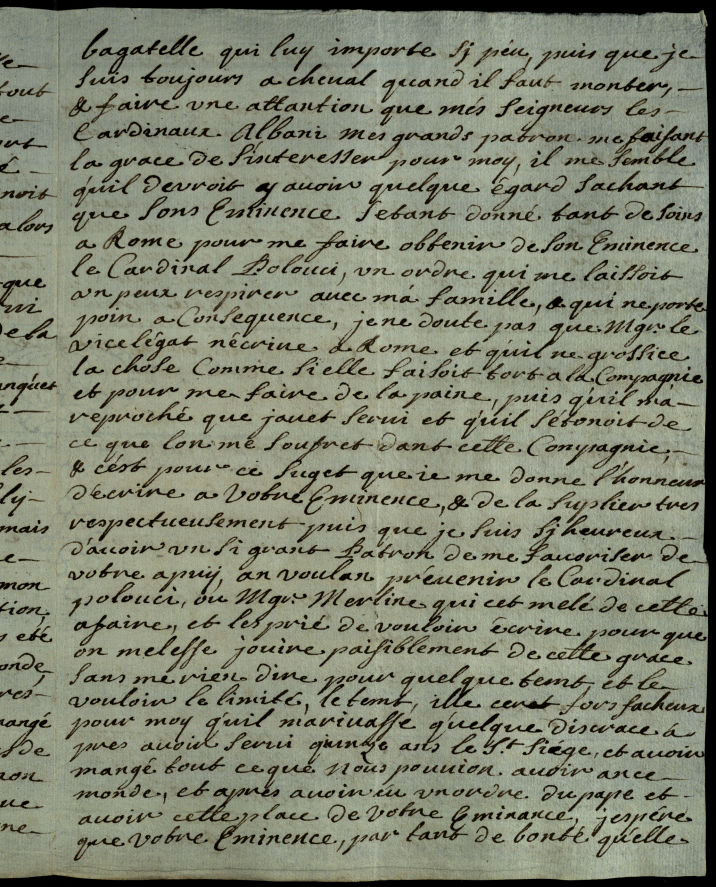 bagatelle qui luy importe sj péu, puis que je
suis toujours a cheval quand il faut monter, –
& faire vne attantion que més seigneurs les –
Cardinaux Albani mes grands patron me faisant
la grace de s'interesser pour moy, il me semble
quil devroit y avoir quelque égard sachant
que sons Eminence setant donné tant de soins
a Rome pour me faire obtenir de son Eminence
le Cardinal Polouci, vn ordre qui me laissoit
vn peux respirer avec má famille, & qui ne porte
poin a Consequence, je ne doute pas que Mgr. le
vicelégat nécrive a Rome et quil ne grossice
la chose Comme si elle faisoit tort a la Compagnie
et pour me faire de la paine, puis quil ma –
reproché que javet servi et quil sétonoit de
ce que lon mé soufret dant cette Compagnie, –
& cést pour ce suget que ie me donne l'honneur
décrire a Votre Eminence, & de la suplier tres
respectueusement puis que je suis sj heureux –
d'avoir vn si grant Patron de me favoriser de
votre apuy, an voulan prévenir le Cardinal
polouci, ou Mgr. Merline qui cet melé de cette
afaire, et les prié de vouloir écrire pour que
on me lesse jouire paisiblement de cette grace
sans me rien dire pour quelque temt, et le
vouloir le limité, le temt, ille ceret fors facheux
pour moy quil marivasse quelque discrace á
pres avoir servi quinze ans le St. Siége, et avoir
mangé tout ce que nous pouvion avoir ance –
monde, et aprés avoir eu vn ordre du pape et –
avoir cette place de Votre Eminance, jespére
que votre Eminence, par tant de bonté quelle